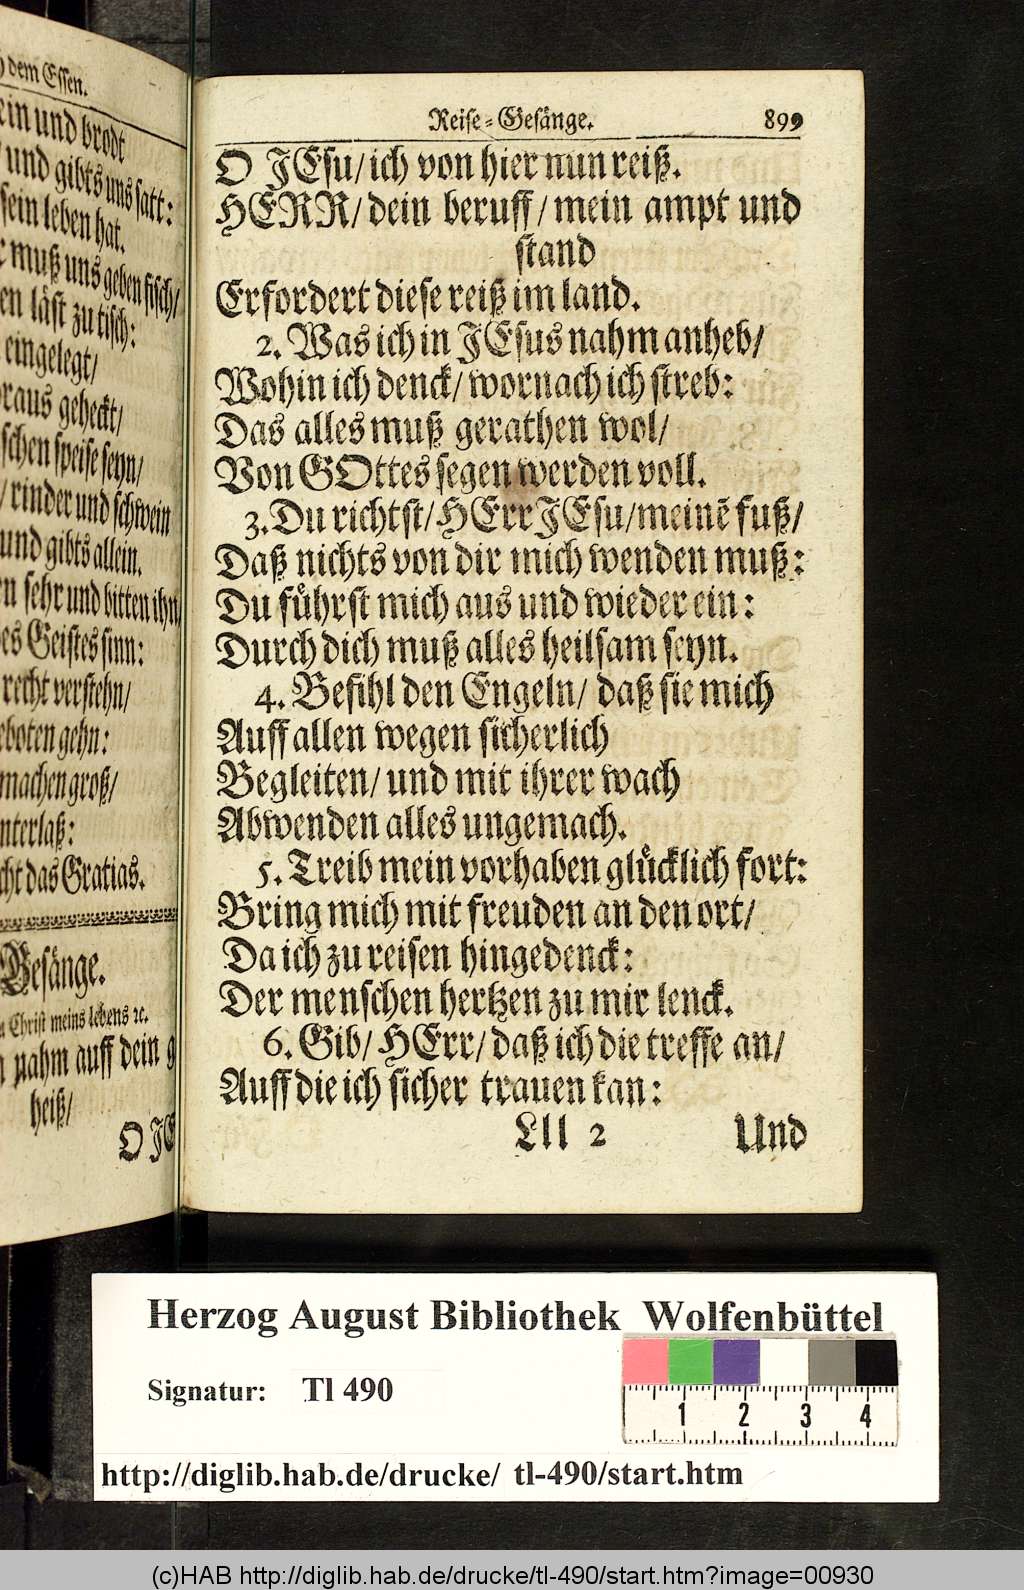 ) dem Essen.
ein und brodt
und gibts uns satt:
sein leben hat.
muß uns geben fisch/
en läst zu tisch:
eingelegt/
raus geheckt/
schen speise seyn/
/ rinder und schwein
und gibts allein.
n sehr und bitten ihn
es Geistes sinn:
recht verstehn/
eboten gehn:
machen groß/
nterlaß:
cht das Gratias.
Gesänge.
Christ meins lebens ꝛc.
nahm auff dein g
heiß/
O JE
Reise-Gesänge. 899
O JEsu/ ich von hier nun reiß.
HERR/ dein beruff/ mein ampt und
stand
Erfordert diese reiß im land.
2. Was ich in JEsus nahm anheb/
Wohin ich denck/ wornach ich streb:
Das alles muß gerathen wol/
Von GOttes segen werden voll.
3. Du richtst/ HErr JEsu/ meinē fuß/
Daß nichts von dir mich wenden muß:
Du führst mich aus und wieder ein:
Durch dich muß alles heilsam seyn.
4. Befihl den Engeln/ daß sie mich
Auff allen wegen sicherlich
Begleiten/ und mit ihrer wach
Abwenden alles ungemach.
5. Treib mein vorhaben glücklich fort:
Bring mich mit freuden an den ort/
Da ich zu reisen hingedenck:
Der menschen hertzen zu mir lenck.
6. Gib/ HErr/ daß ich die treffe an/
Auff die ich sicher trauen kan:
Lll 2 Und
Herzog August Bibliothek Wolfenbüttel
Signatur: Tl 490
1 2 3 4
http://diglib.hab.de/drucke/ tl-490/start.htm
(c)HAB http://diglib.hab.de/drucke/tl-490/start.htm?image=00930